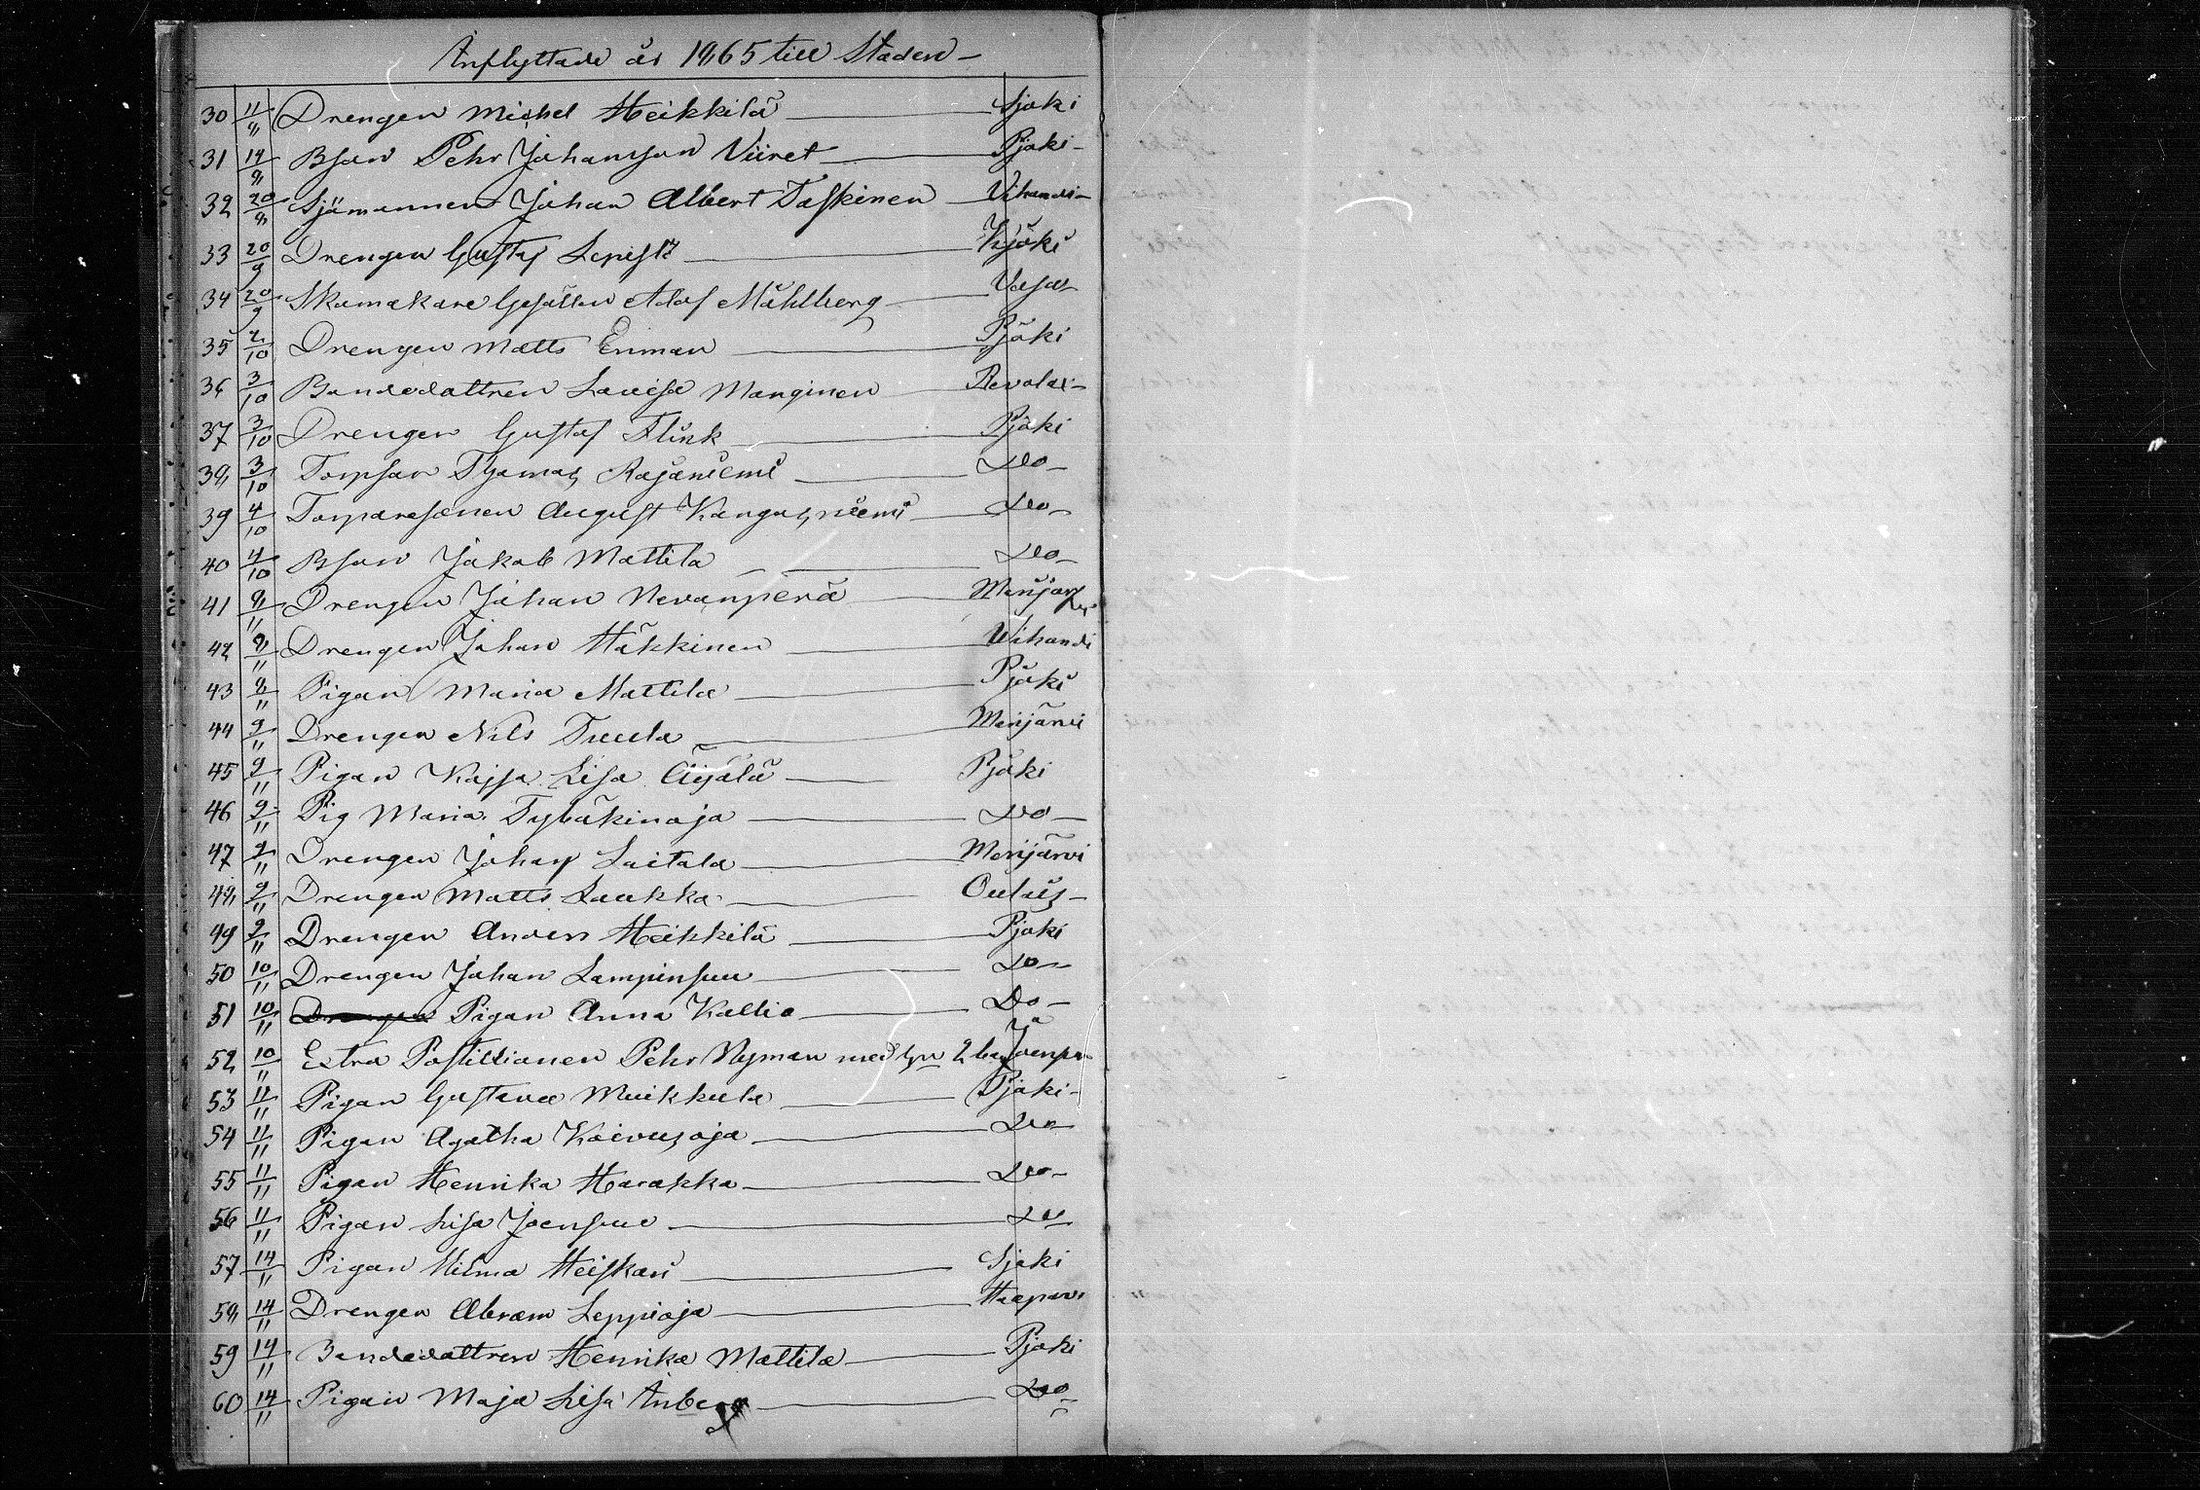 Inflyttade år 1865 till Staden –
30 11/8 Drengen Michel Heikkilä Sjoki
31 14/8 Bson Pehr Johansson Viiret Pjoki –
32 20/8 Sjömannen Johan Albert Taskinen Vihandi –
33 20/9 Drengen Gustaf Lepistö Kjoki
34 20/9 Skomakare Gesällen Adolf Mählberg Vasa
35 2/10 Drengen Matts Enman Pjoki
36 3/10 Bondedottren Lovisa Manginen Revolax –
37 3/10 Drengen Gustaf Flink Pjoki
38 3/10 Torpson Thomas Rajaniemi Do –
39 4/10 Torparesonen August Kangasniemi Do –
40 4/10 Bson Jakob Mattila Do –
41 8/11 Drengen Johan Nevanperä Merijärvi
42 8/11 Drengen Johan Häkkinen Wihandi
43 8/11 Pigan Maria Mattila Pjoki
44 9/11 Drengen Nils Tuula Merijärvi
45 9/11 Pigan Kajsa Lisa Äijälä Pjoki
46 9/11 Pig Maria Typäkinoja Do –
47 9/11 Drengen Johan Laitala Merijärvi
48 9/11 Drengen Matts Laukka Oulais –
49 9/11 Drengen Anders Heikkilä Pjoki
50 10/11 Drengen Johan Lampinsuu Do –
51 10/11 Drengen Pigan Anna Kallio Do –
52 10/11 Extra Postillionen Pehr Nyman med hu 2 ba
53 11/11 Pigan Gustava Muikkula Pjoki –
54 11/11 Pigan Agatha Koivusoja Do
55 11/11 Pigan Henrika Harakka Do –
56 11/11 Pigan Lisa Joensuu Do
57 14/11 Pigan Hilma Heiskari Sjoki
58 14/11 Drengen Abram Leppioja Haapavi
59 14/11 Bondedottren Henrika Mattila Pjoki
60 14/11 Pigan Maja Lisa Do –